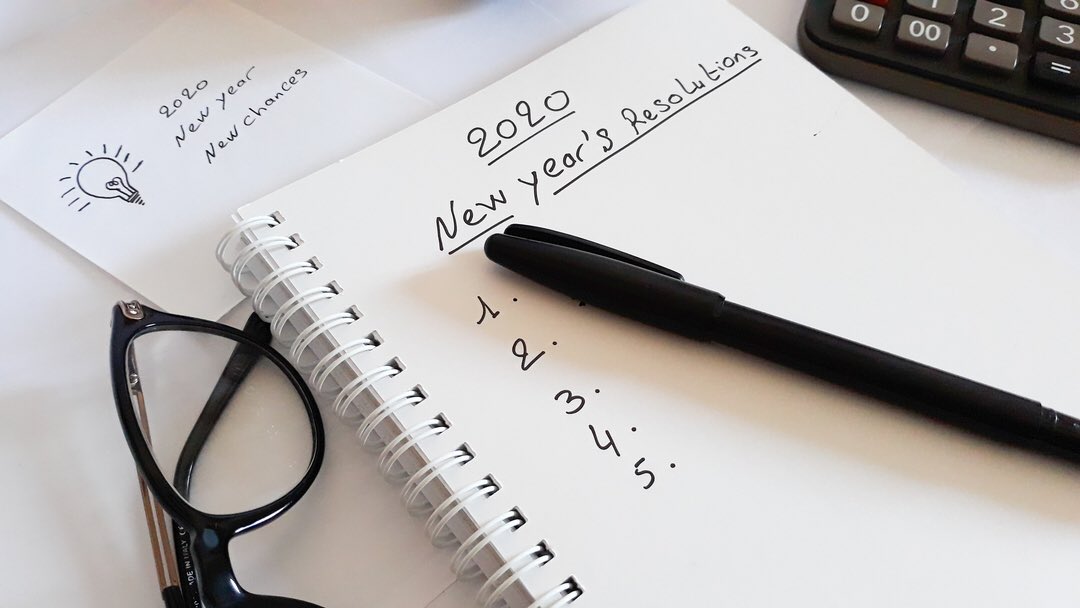 2020
New year
New chances
2020
New year's Resolutions
1.
2.
3.
4.
5.
0
00
2
.
3
=